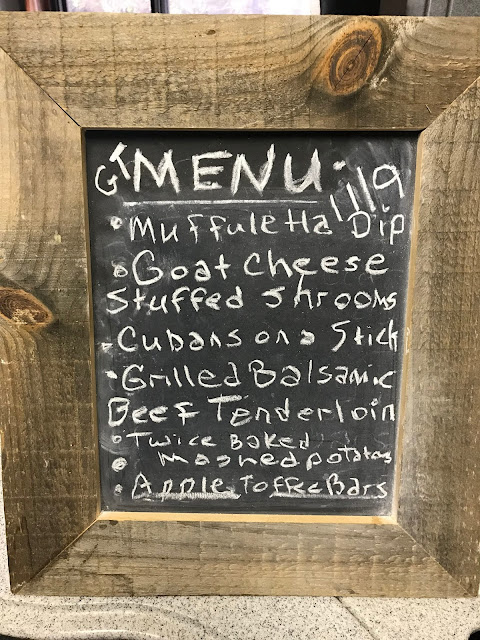 GT MENU 11/9
• Muffuletta Dip
• Goat Cheese
Stuffed Shrooms
• Cubans on a Stick
• Grilled Balsamic
Beef Tenderloin
• Twice Baked
• Mashed potatoes
• Apple Toffee Bars